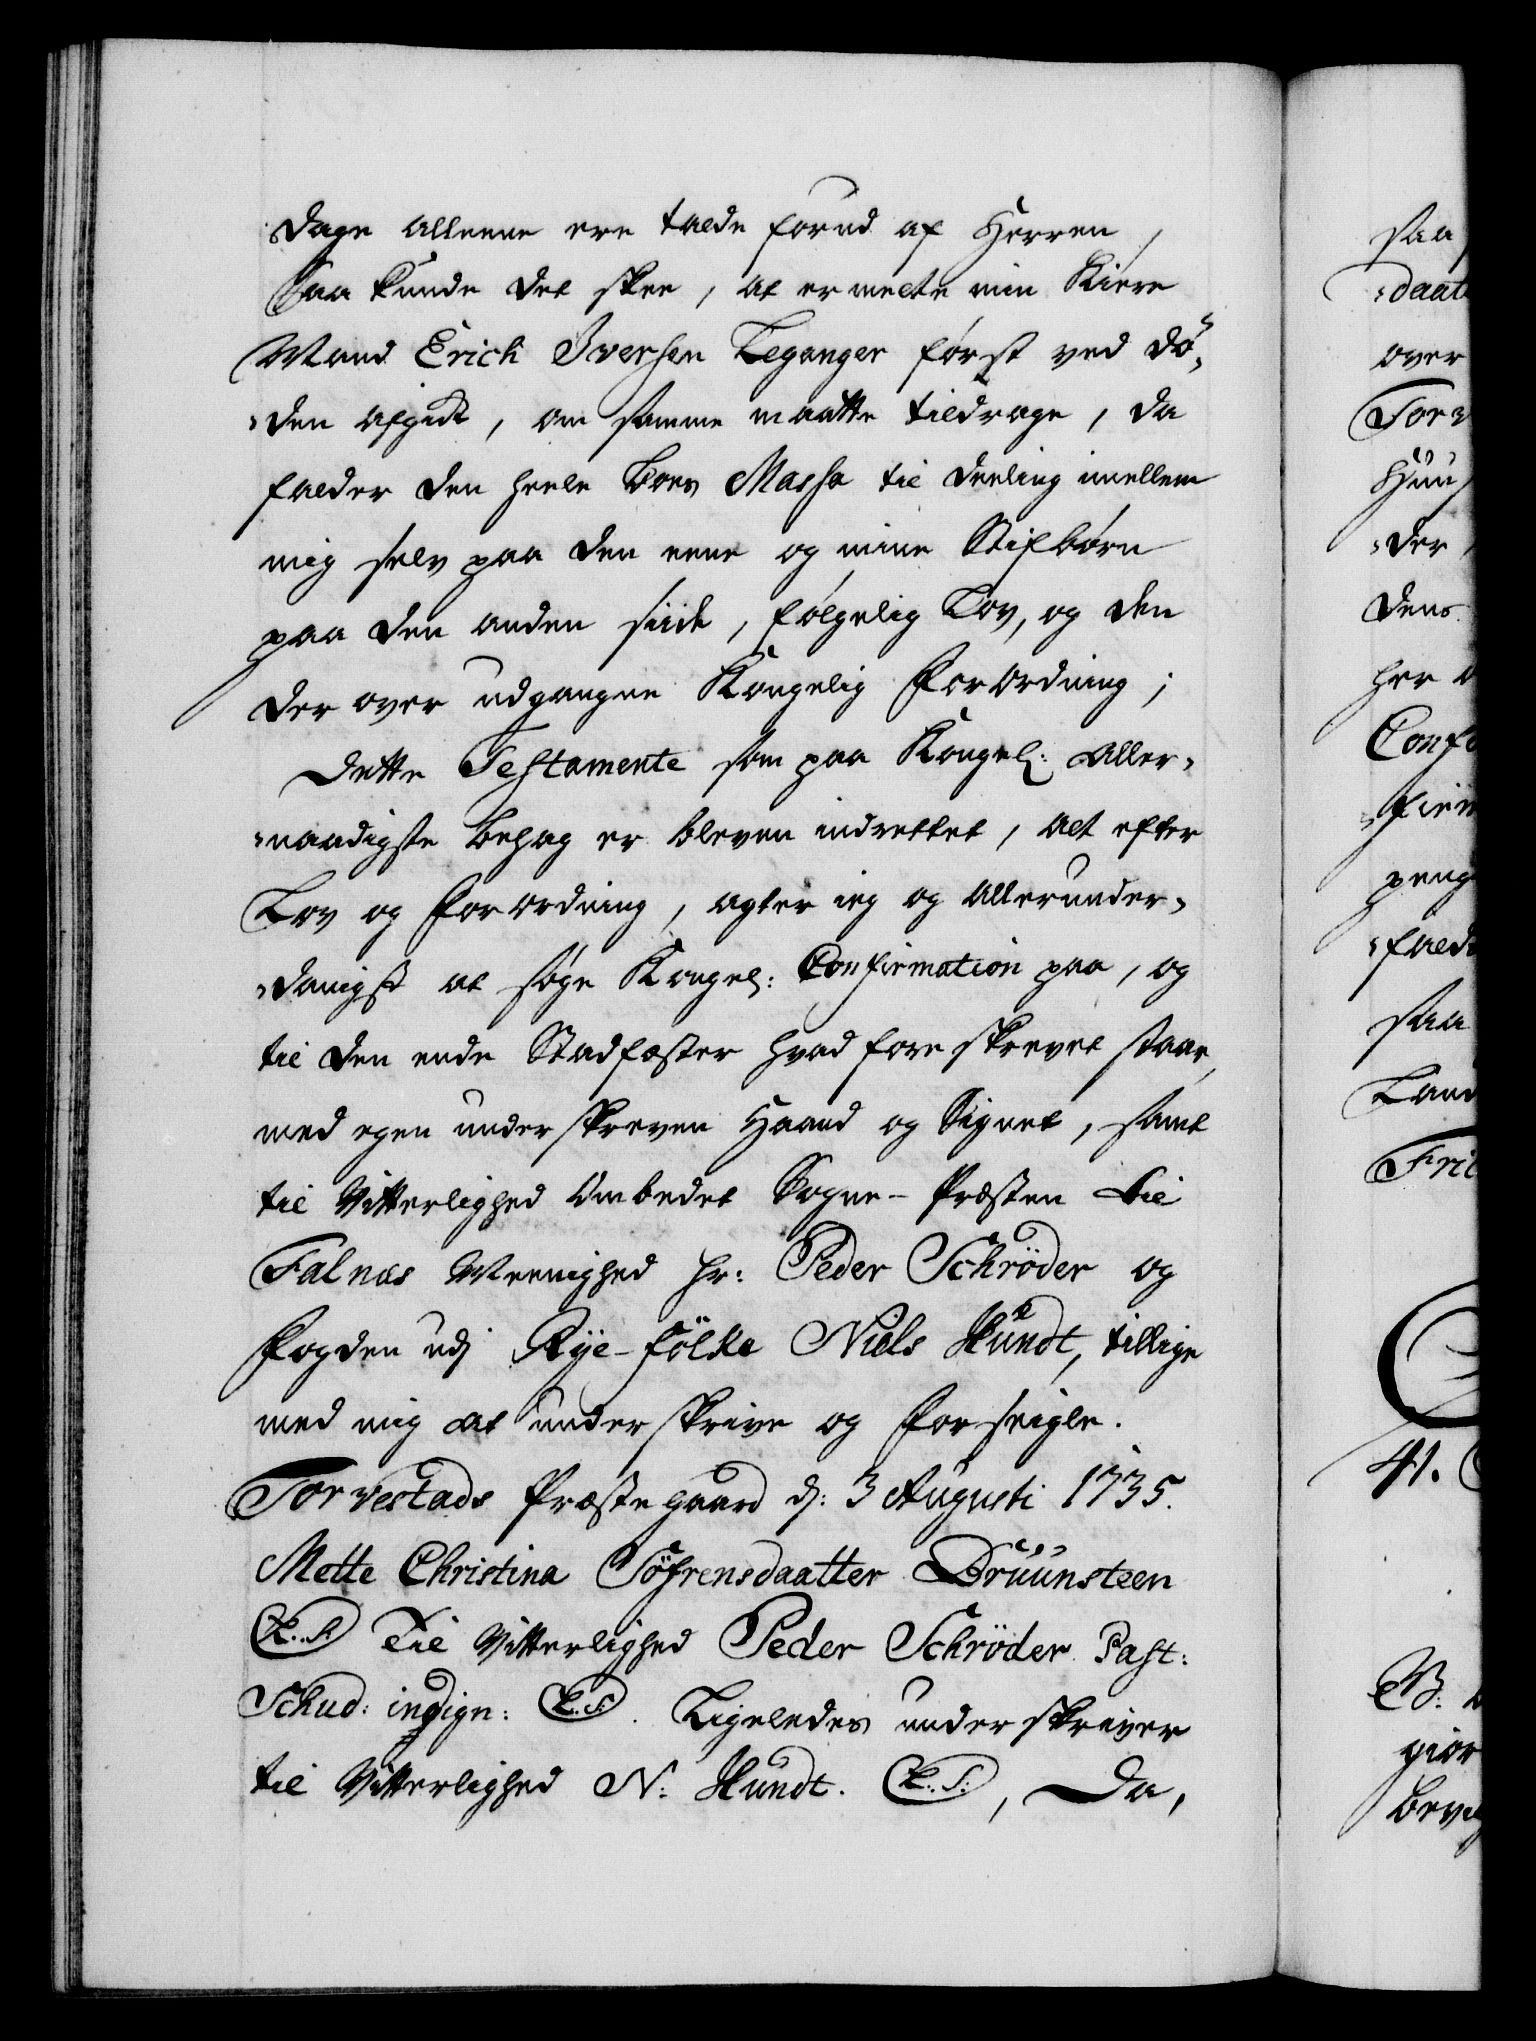 Dage alleene ere talde forud af Herren,
Saa kunde det skee, at ermelte min Kiere
Mand Erich Iversen Leganger først ved Dø-
den afgik, om samme maatte tildrage, da
falder den heele Boes Massa til deeling imellem
mig selv paa den eene og mine Stifbørn
paa den anden siide, følgelig Lov, og den
der over udgangne Kongelig Forordning;
Dette Testamente som paa Kongel: Aller-
naadigste behag er bleven indrettet, alt efter
Lov og Forordning, agter ieg og allerunder-
danigst at søge Kongel: Confirmation paa, og
til den ende Stadfæster hvad foreskrevet staar,
med egen underskreven Haand og Signet, samt
til Vitterlighed Ombedet Sogne-Præsten til
Falnæs Meenighed Hr: Peder Schrøder og
Fogden udj Rÿe-fölke Niels Hundt, tillige
med mig at underskrive og forseigle.
Torvestads Præstegaard d: 3 Augusti 1735.
Mette Christina Söfrensdaatter Bruunsteen
(L.S.) Til Vitterlighed Peder Schrøder Past:
Schud: indign: (L.S.). Ligeledes underskriver
til Vitterlighed N: Hundt. (L.S.), Da,
saa
daat
over
Torv
Huu
der
dens
her
Conf
firm
peng
fald
saa
Land
Fri
41.
B:
giør
bevi